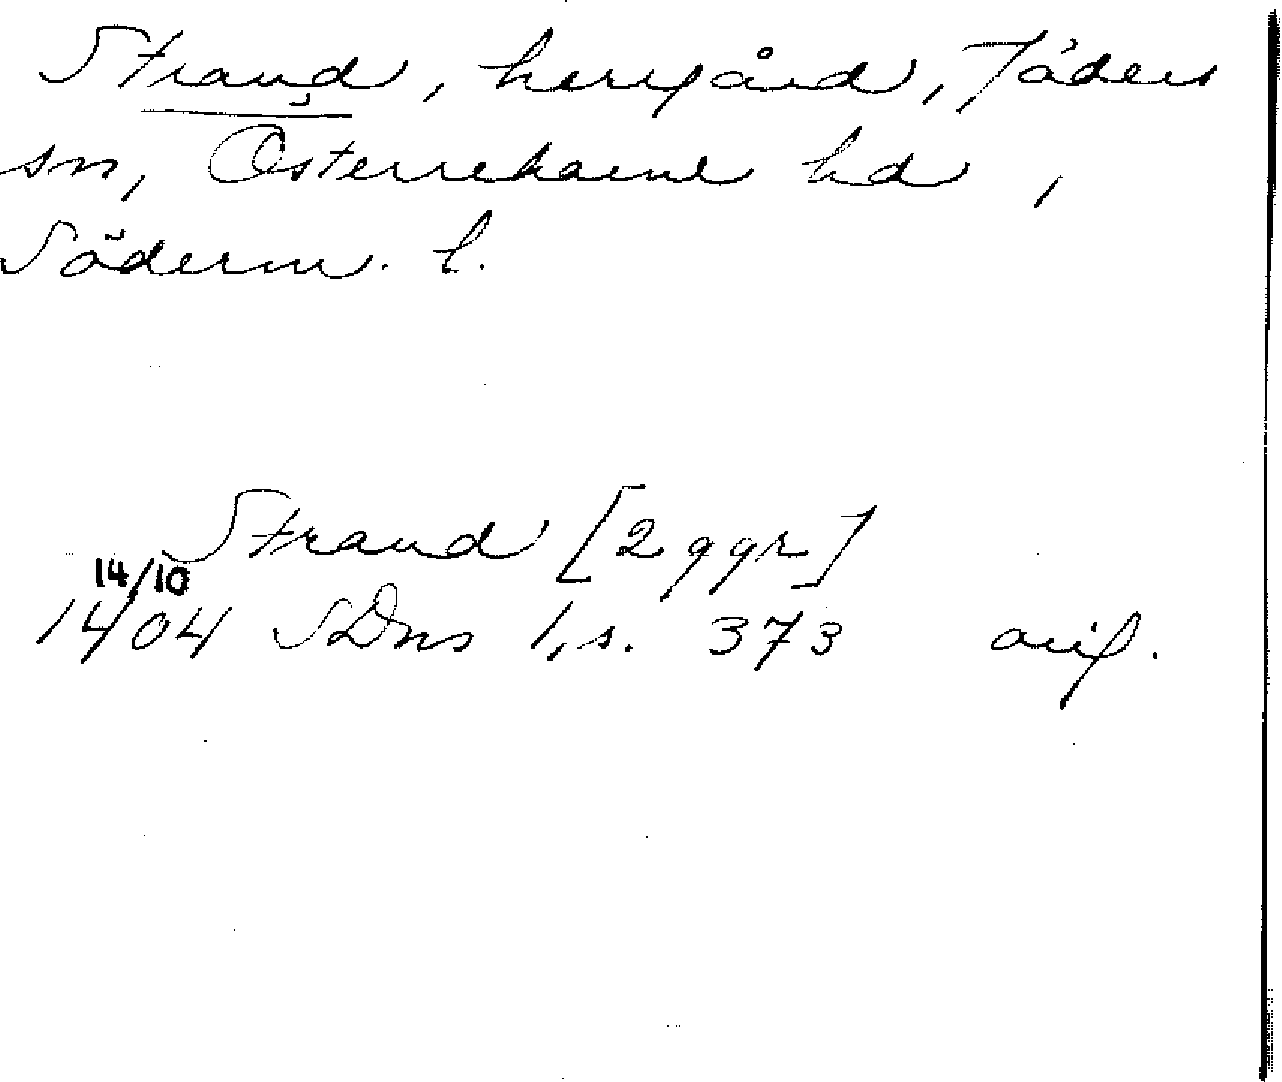 Strand, herrgård, Jäders
sn, Österrekarne hd,
Söderm. l.
Strand [2 ggr]
14/10
1404 SDns 1, s. 373 avskr.